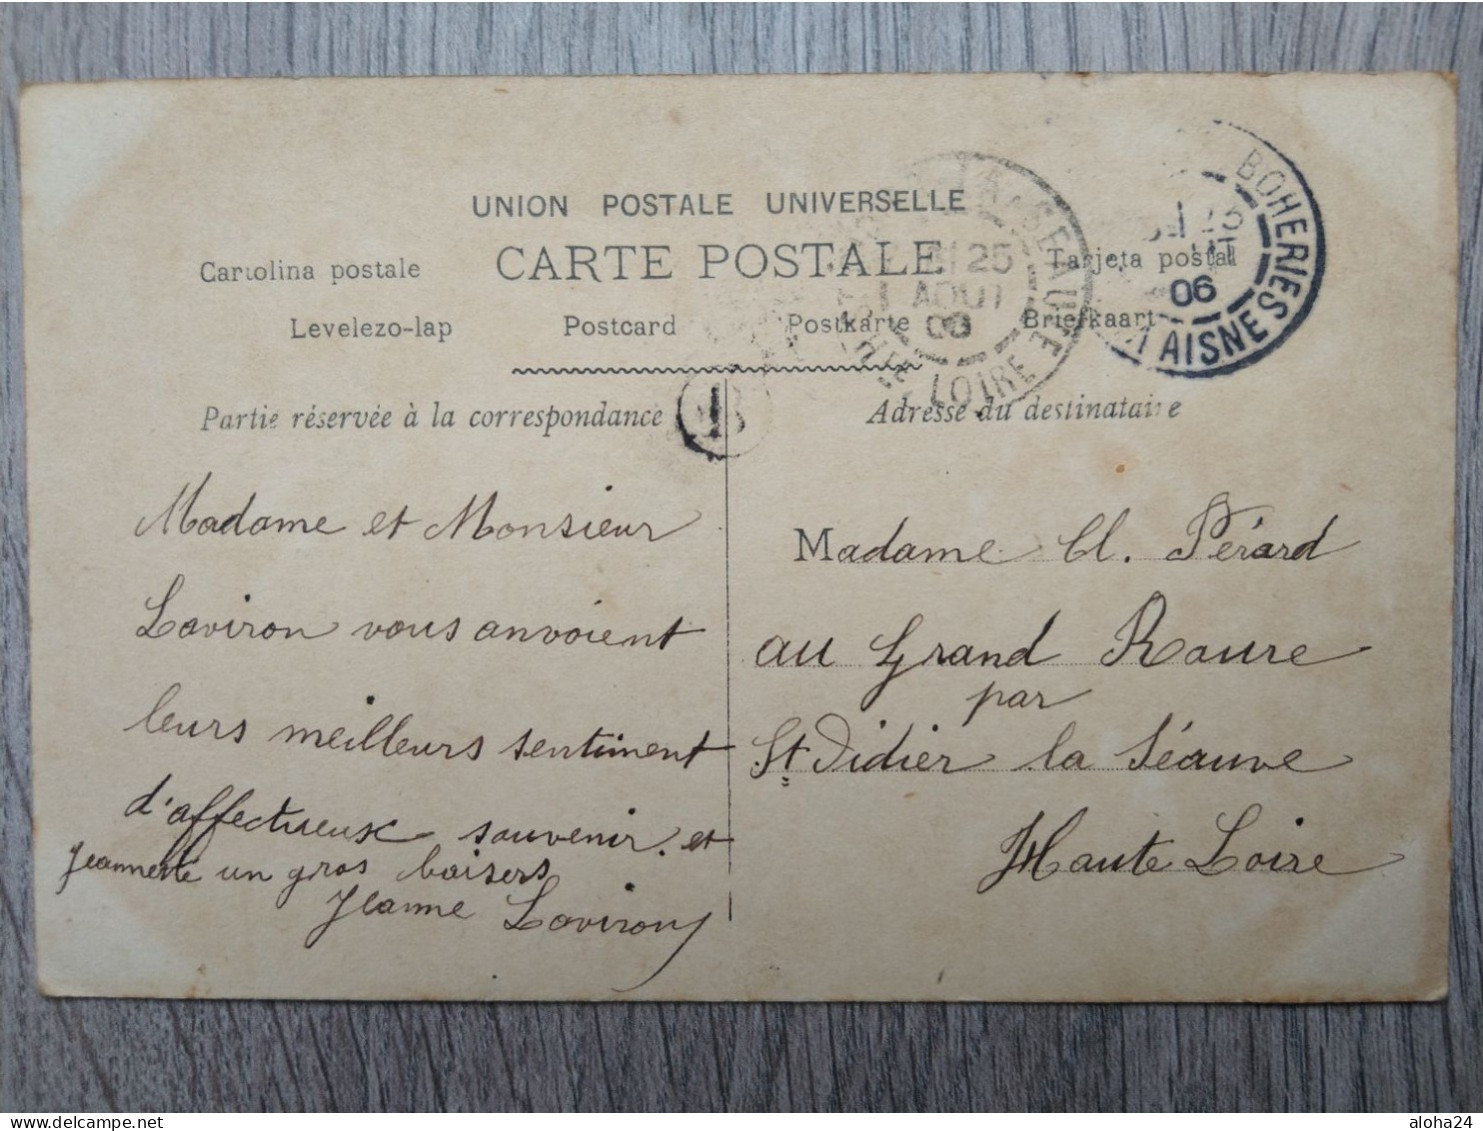 UNION POSTALE UNIVERSELLE
Cartolina postale CARTE POSTALE Tarjeta postal
Levelezo-lap Postcard Postkarte Briefkaart
LA SEAUVE
25
AOUT
06
HTE LOIRE
BOHERIES
06
AISNE
Partie réservée à la correspondance
Adresse du destinataire
Madame et Monsieur
Laviron vous anvoient
leurs meilleurs sentiment
d'affectueux souvenir. et
Jeannette un gros baisers
Jeanne Laviron
Madame Cl. Pérard
au Grand Roure
par
St Didier la Séauve
Haute Loire
aloha24